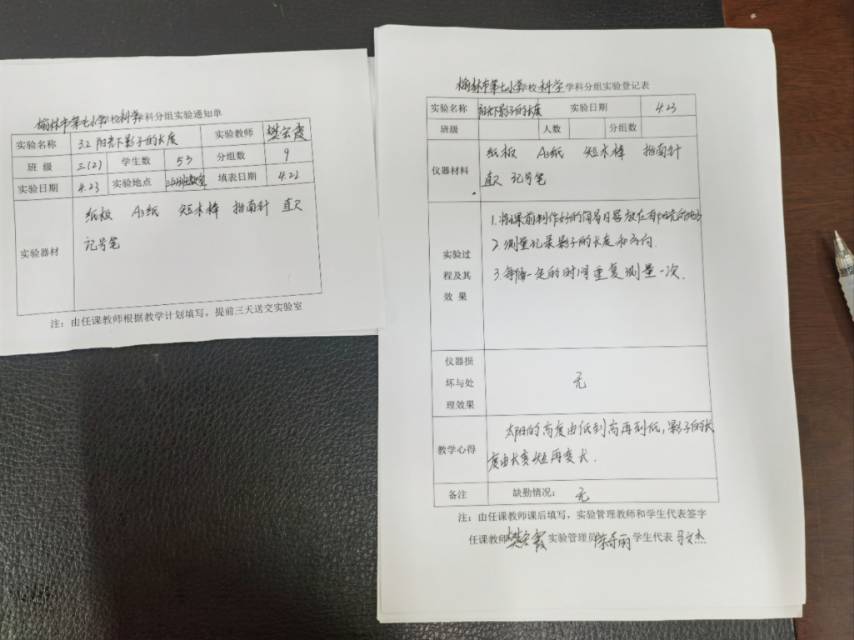 榆林市第七小学校科学学科分组实验通知单
实验名称 3.2 阳光下影子的长度 实验教师
班 级 三(2) 学生数 53 分组数 9
实验日期 4.23 实验地点 填表日期 4.22
实验器材
纸板 A3纸 短木棒 指南针 直尺
记号笔
注：由任课教师根据教学计划填写，提前三天送交实验室
榆林市第七小学校科学学科分组实验登记表
实验名称 阳光下影子的长度 实验日期 4.23
班级 人数 分组数
仪器材料
纸板 A3纸 短木棒 指南针
直尺 记号笔
实验过
程及其
效 果
1.将课前制作好的简易日晷放在有阳光的地方
2.测量记录影子的长度和方向.
3.每隔一定的时间重复测量一次.
仪器损
坏与处
理效果
无
教学心得
太阳的高度由低到高再到低,影子的长
度由长变短再变长.
备注 缺勤情况： 无
注：由任课教师课后填写，实验管理教师和学生代表签字
任课教师 实验管理员 学生代表